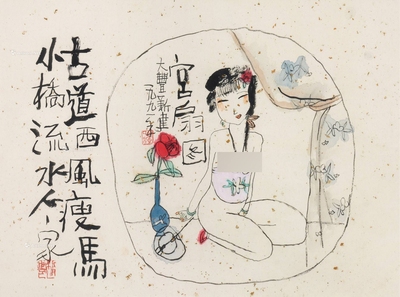 宮扇图
大豐新建
一九九
古道西風瘦馬
小橋流水人家